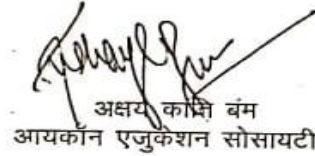 अक्षय कांति बंम
आयकॉन एजुकेशन सोसायटी